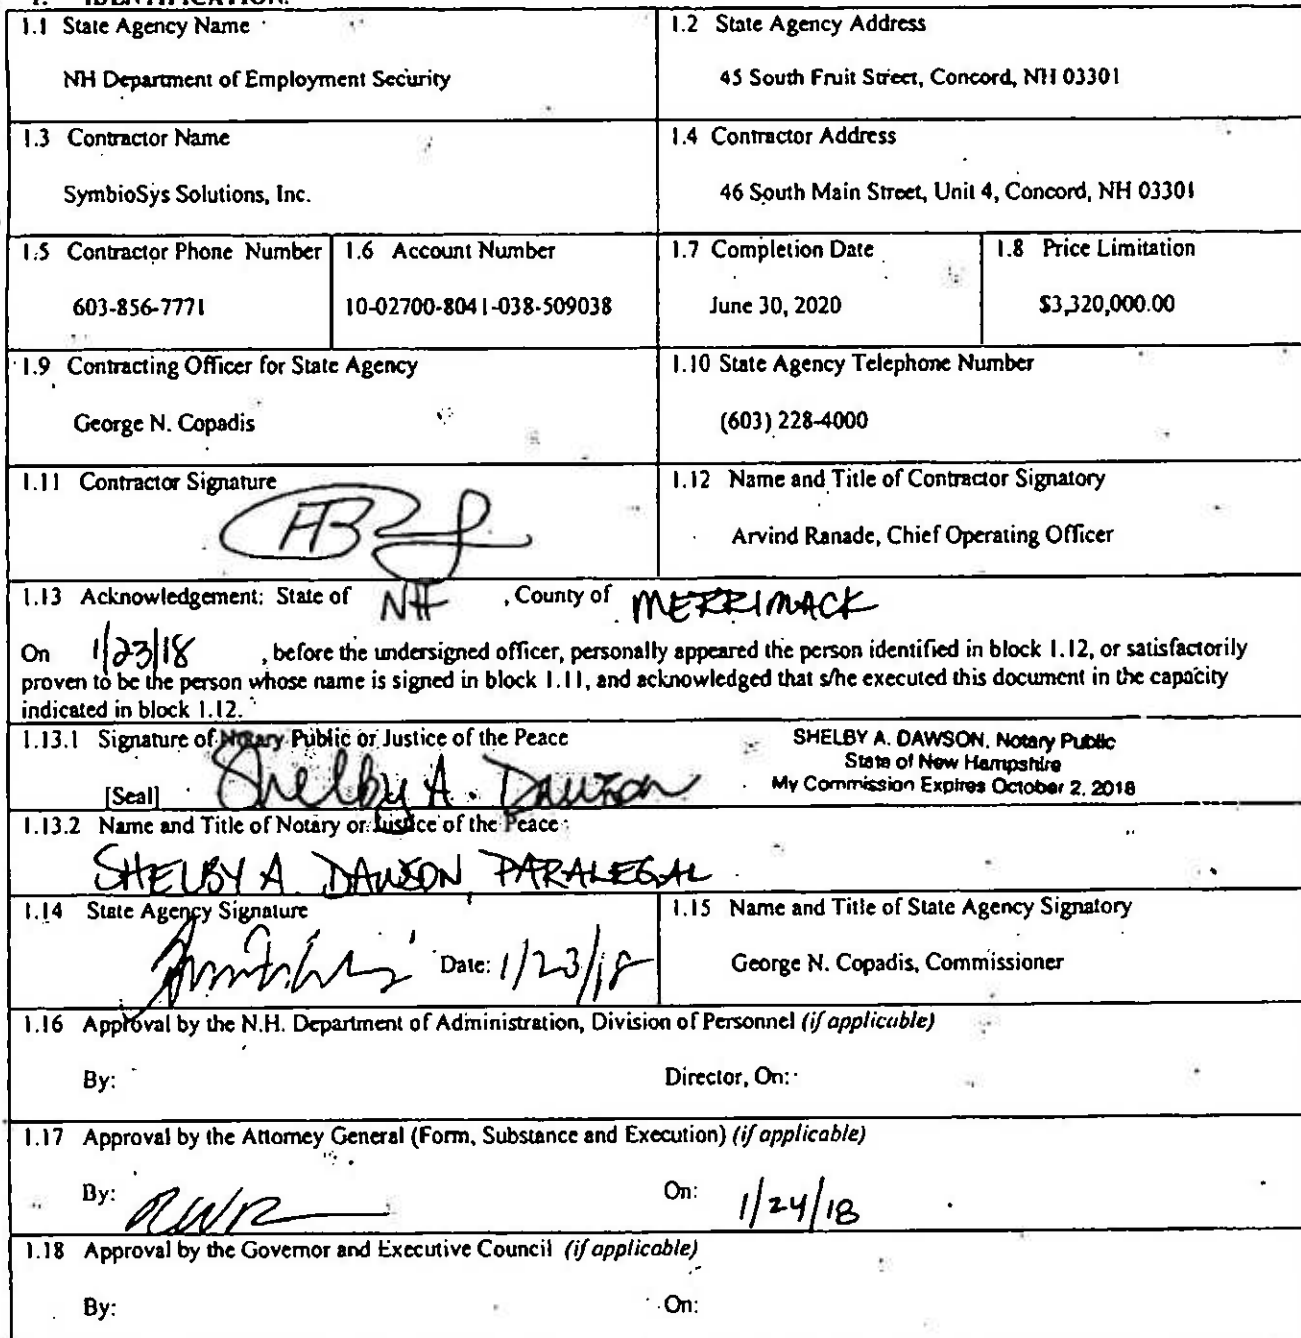 1. IDENTIFICATION.
1.1 State Agency Name
NH Department of Employment Security
1.2 State Agency Address
45 South Fruit Street, Concord, NH 03301
1.3 Contractor Name
SymbioSys Solutions, Inc.
1.4 Contractor Address
46 South Main Street, Unit 4, Concord, NH 03301
1.5 Contractor Phone Number
603-856-7771
1.6 Account Number
10-02700-8041-038-509038
1.7 Completion Date
June 30, 2020
1.8 Price Limitation
$3,320,000.00
1.9 Contracting Officer for State Agency
George N. Copadis
1.10 State Agency Telephone Number
(603) 228-4000
1.11 Contractor Signature
1.12 Name and Title of Contractor Signatory
Arvind Ranade, Chief Operating Officer
1.13 Acknowledgement: State of NH , County of MERRIMACK
On 1/23/18 , before the undersigned officer, personally appeared the person identified in block 1.12, or satisfactorily
proven to be the person whose name is signed in block 1.11, and acknowledged that s/he executed this document in the capacity
indicated in block 1.12.
1.13.1 Signature of Notary Public or Justice of the Peace
[Seal] Shelby A. Dawson
SHELBY A. DAWSON, Notary Public
State of New Hampshire
My Commission Expires October 2, 2018
1.13.2 Name and Title of Notary or Justice of the Peace
SHELBY A. DAWSON, PARALEGAL
1.14 State Agency Signature
Date: 1/23/18
1.15 Name and Title of State Agency Signatory
George N. Copadis, Commissioner
1.16 Approval by the N.H. Department of Administration, Division of Personnel (if applicable)
By: Director, On:
1.17 Approval by the Attorney General (Form, Substance and Execution) (if applicable)
By: On: 1/24/18
1.18 Approval by the Governor and Executive Council (if applicable)
By: On: